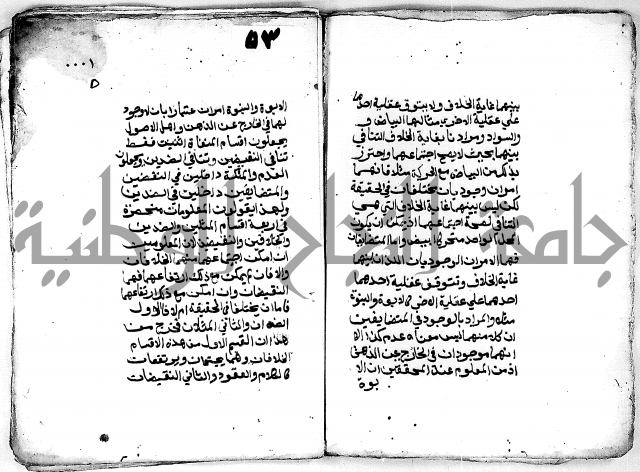 بينهما غاية الخلاف ولا يتوقف عقلية احدهما
على عقلية الاخر مثالهما البياض و
والسواد ومرادنا بغاية الخلاف التنافي
بينهما بحيث لا يصح اجتماعهما واحترز
بذلك من البياض مع الحركة مثلا فانهما
امران وجوديان مختلفان في الحقيقة
لكن ليس بينهما غاية الخلاف التي هي
التنافي لصحة اجتماعهما اذ يمكن ان يكون
المحل الواحد متحركا ابيض واما المتضايفان
فهما الامران الوجوديان اللذان بينهما
غاية الخلاف وتتوقف عقلية احدهما
احدهما على عقلية الاخر كالابوة والبنوة
مثلا والمراد بالوجود في المتضايفين
ان كلا منهما ليس معناه عدم كذا لا
انهما موجودان في الخارج عن الذهن
اذ من المعلوم عند المحققين ان الا
بوة
٥٣
٠٠٠١
٥
الابوة والبنوة امران اعتباريان لا وجود
لهما في الخارج عن الذهن واهل الاصول
يجعلون اقسام المنافاة اثنين فقط
تنافي النقيضين وتنافي الضدين ويجعلون
العدم والملكة داخلين في النقيضين
والمتضايفين داخلين في الضدين
ولهذا يقولون المعلومات منحصرة
في اربعة اقسام المثلين والضدين
والخلافين والنقيضين لان المعلومين
ان امكن اجتماعهما فهما الخلافان
والا فان لم يمكن مع ذلك ارتفاعهما فهما
النقيضان وان امكن مع ذلك ارتفاعهما
فاما ان يختلفا في الحقيقة ام لا فالاول
الضدان والثاني المثلان فخرج من
هذا ان القسم الاول من هذه الاقسام
الخلافان وهما يجتمعان ويرتفعان
كالكلام والقعود والثاني النقيضان
جامعة النجاح الوطنية